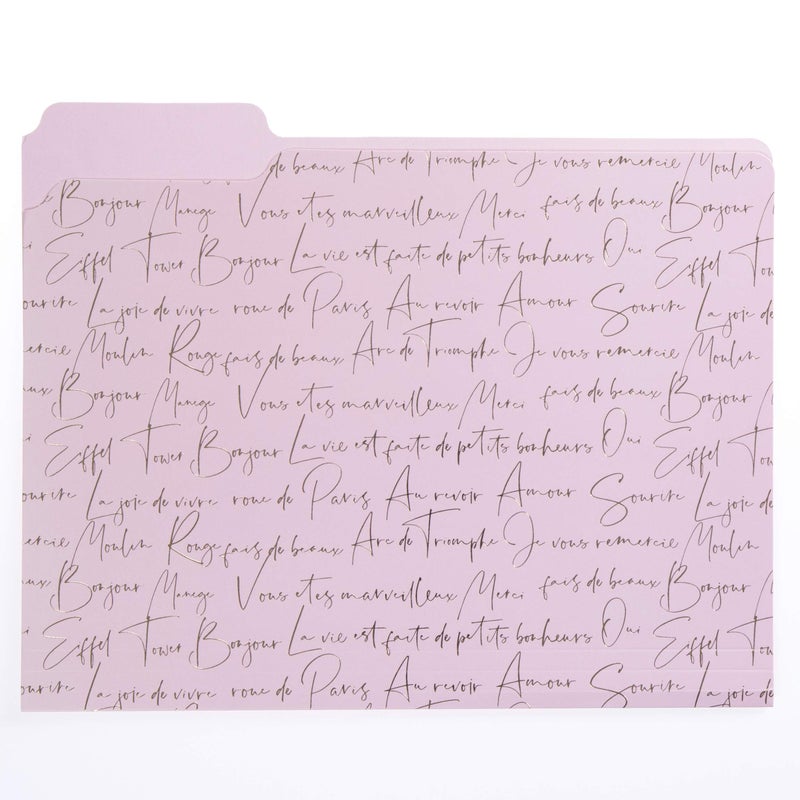 de beaux Arc de Triomphe Je vous remercie Moulin
Bonjour Manege Vous etes marveilleux Merci fais de beaux Bonjour
Eiffel Tower Bonjour La vie est faite de petits bonheurs Oui Eiffel Tow
ourire La joie de vivre roue de Paris Au revoir Amour Sourire La joie de
ercie Moulin Rouge fais de beaux Arc de Triomphe Je vous remercie Moulin
aux Bonjour Manege Vous etes marveilleux Merci fais de beaux Bonjour
Eiffel Tower Bonjour La vie est faite de petits bonheurs Oui Eiffel Tow
ourire La joie de vivre roue de Paris Au revoir Amour Sourire La joie de
ercie Moulin Rouge fais de beaux Arc de Triomphe Je vous remercie Moulin
aux Bonjour Manege Vous etes marveilleux Merci fais de beaux Bonjour
Eiffel Tower Bonjour La vie est faite de petits bonheurs Oui Eiffel Tow
ourire La joie de vivre roue de Paris Au revoir Amour Sourire La joie de